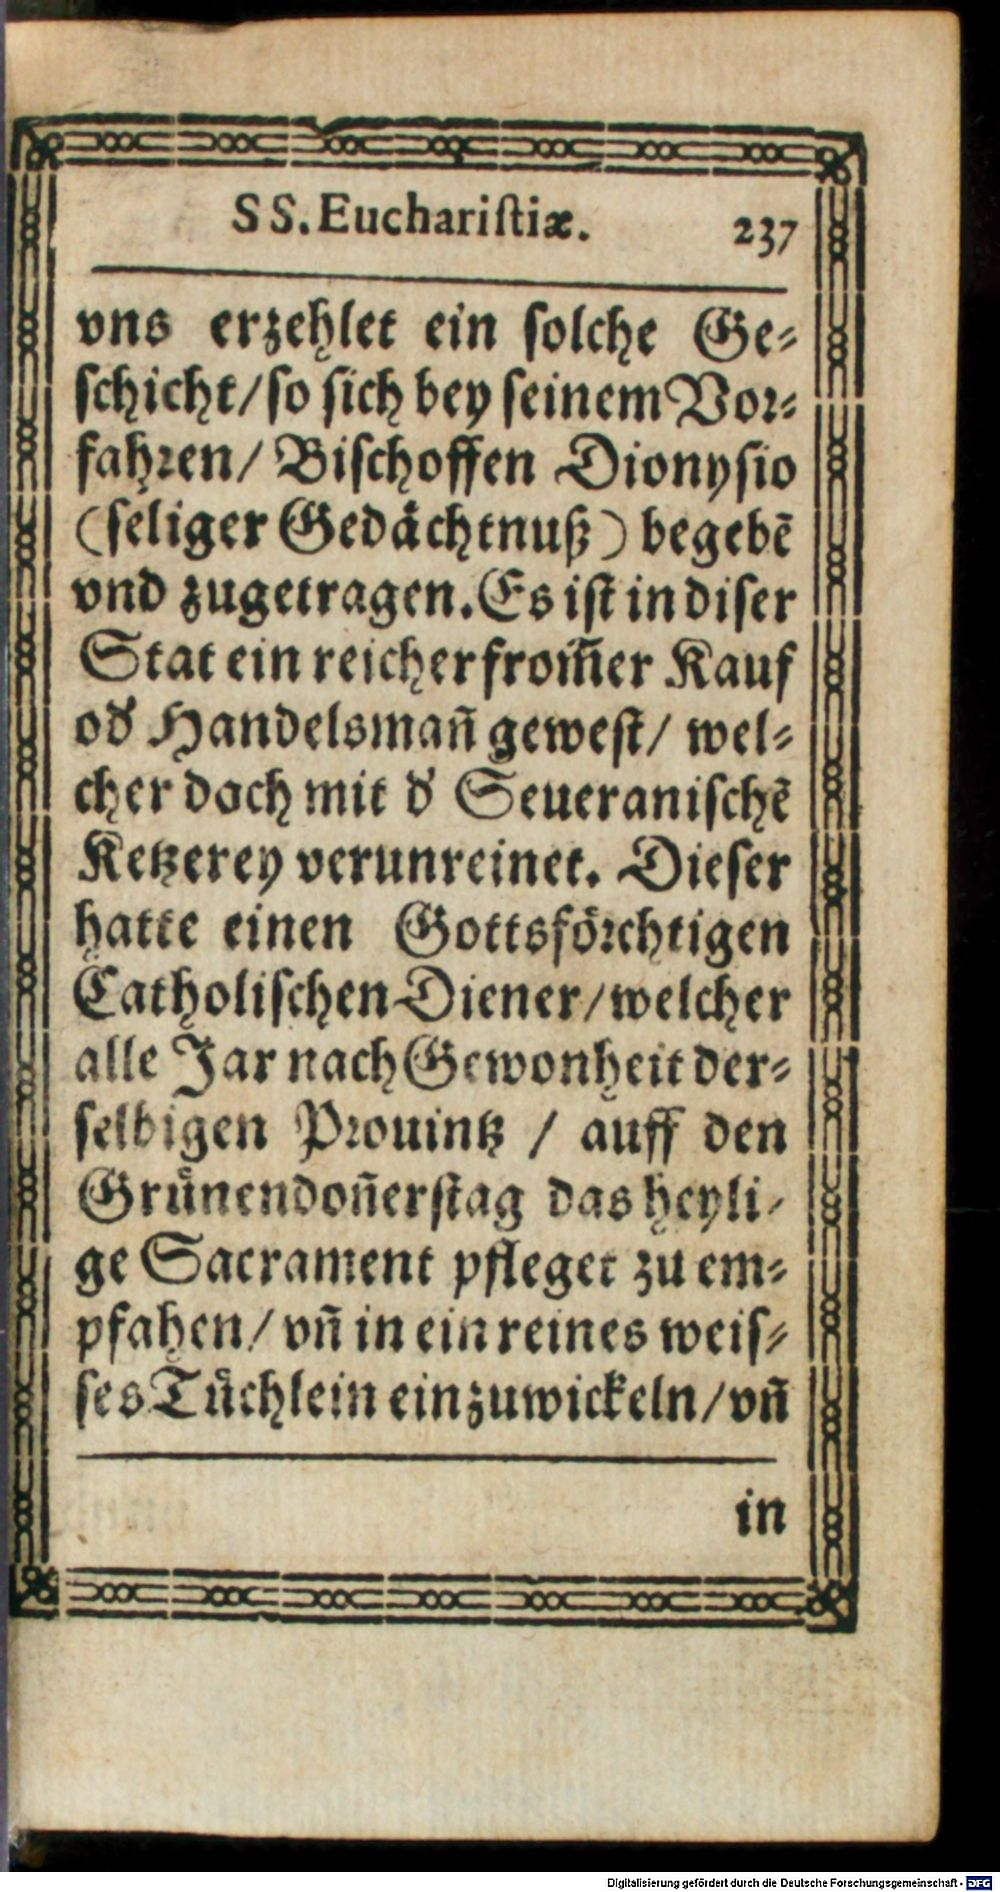 SS. Euchariſtiæ. 237
vns erzehlet ein ſolche Ge-
ſchicht/ſo ſich bey ſeinem Vor-
fahren/ Biſchoffen Dionyſio
(ſeliger Gedåchtnuß) begebẽ
vnd zugetragen. Es iſt in diſer
Stat ein reicher from̃er Kauf
od' Handelsmañ geweſt/ wel-
cher doch mit d' Seueraniſchẽ
Ketzerey verunreinet. Dieſer
hatte einen Gottsförchtigen
Catholiſchen Diener/welcher
alle Jar nach Gewonheit der-
ſelbigen Prouintz / auff den
Grůnendoñerſtag das heyli-
ge Sacrament pfleget zu em-
pfahen/ vñ in ein reines weiſ-
ſes Tůchlein einzuwickeln/vñ
in
Digitalisierung gefördert durch die Deutsche Forschungsgemeinschaft - DFG